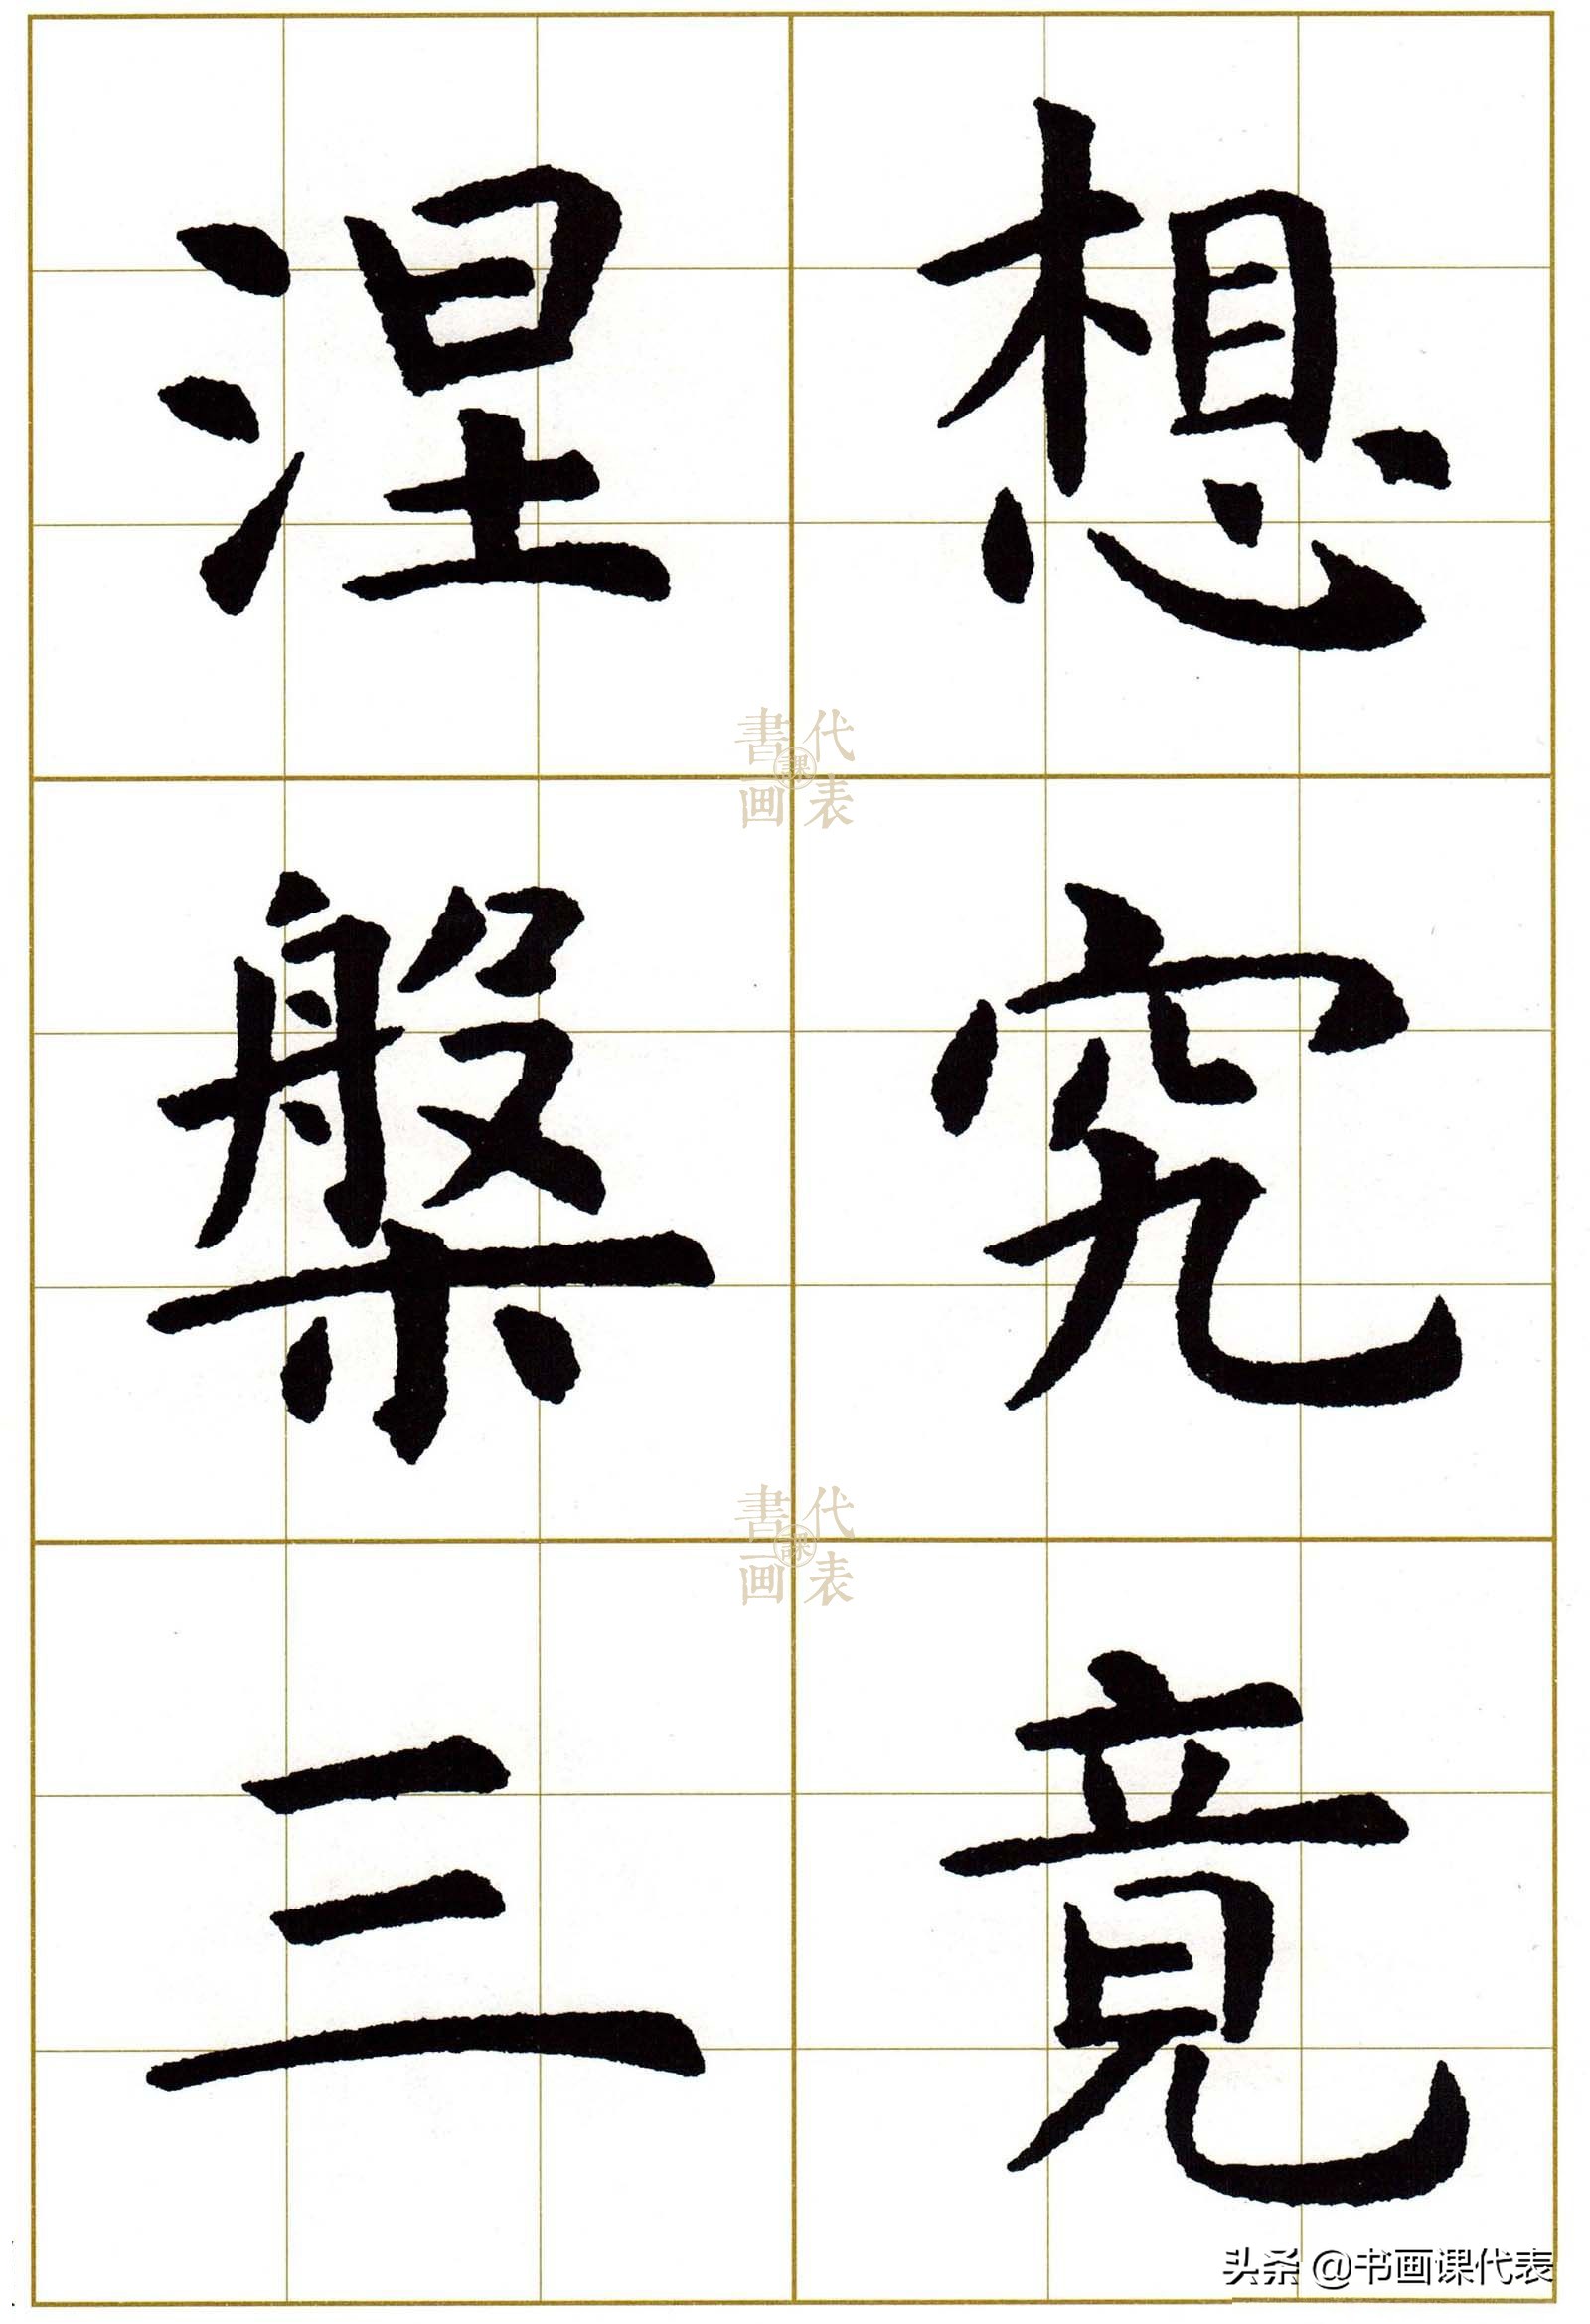 想究竟
涅槃三
書画課代表
書画課代表
头条 @书画课代表